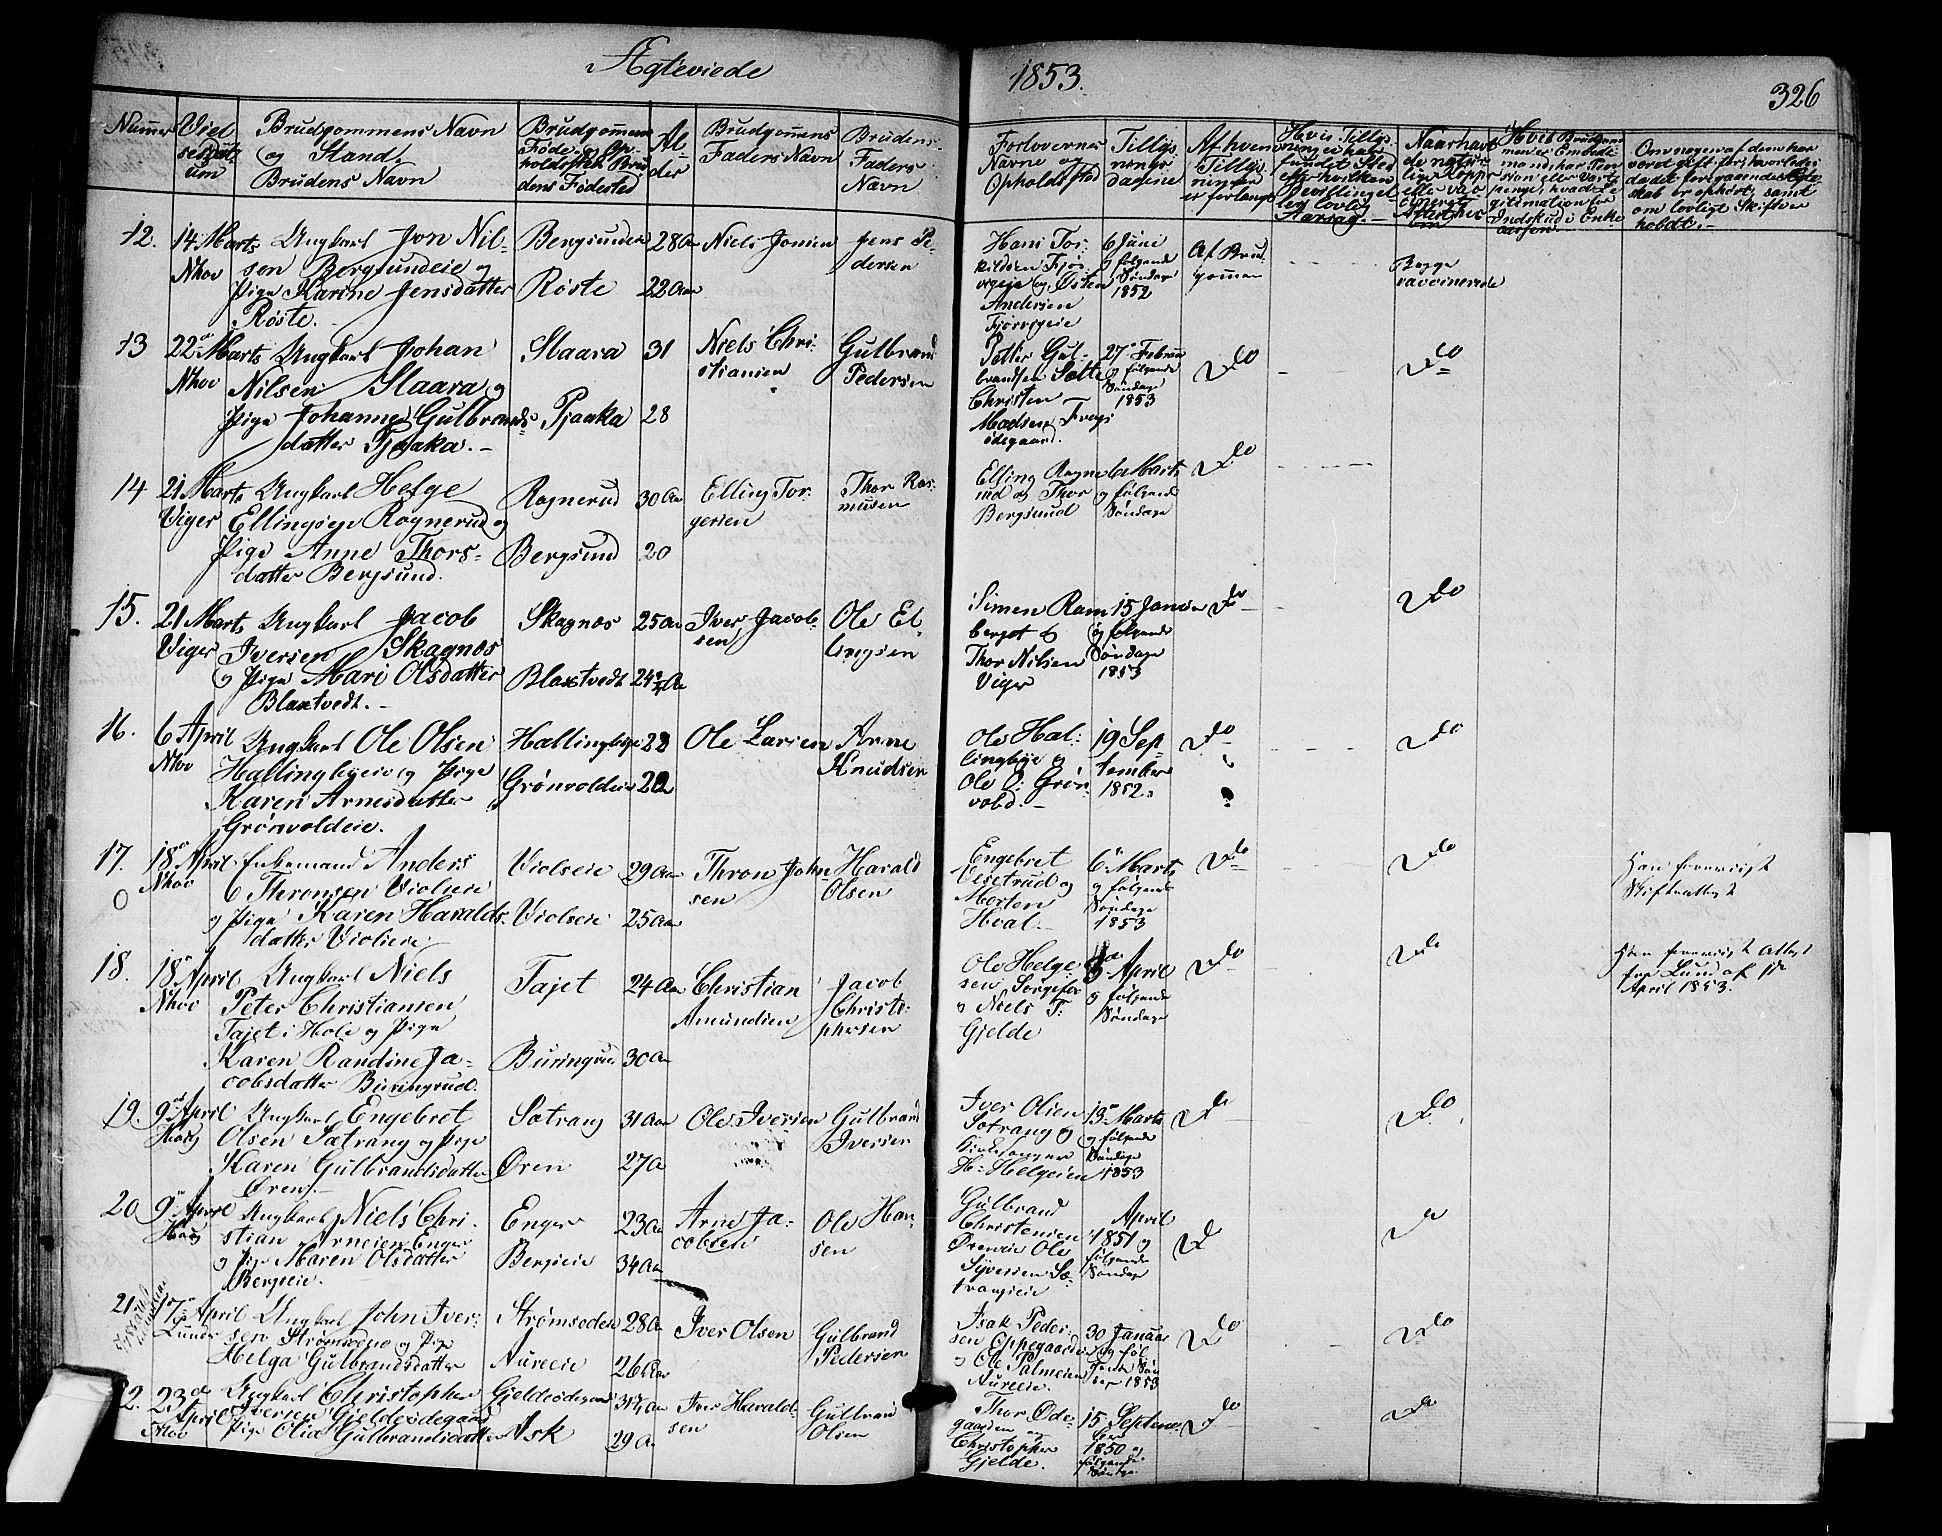 Ægteviede
1853.
326
Numer
Vielsesdatum
Brudgommens Navn
og Stand,
Brudens Navn
Brudgommens
Føde og Opholdsted Brudens Fødested
Alder
Brudgommens
Faders Navn
Brudens
Faders
Navn
Forlovernes
Navne og
Opholdsted
Tillysningsdagene
Af hvem
Tillysningen
er forlangt
12.
14 Marts
Nhov
Ungkarl Jon Nilsen Bergsundeie og
Pige Karine Jensdatter
Røste.
Bergsundei
Røste
28 Aar
22 Aar
Niels Jonsen
Jens Pedersen
Hans Torkildsen
og Østen
Andersen
6 Juni
og følgende
Søndage
1852
Af Brudgommen
Begge
vaccinerede
13
22de Marts
Nhov
Ungkarl Johan
Nilsen Slaara og
Pige Johanne Gulbrandsdatter Pjaaka.
Slaara
Pjaaka
31
28
Niels Christiansen
Gulbrand
Pedersen
Petter Gulbrandsen Sætte
Christen
Madsen
27 Februar
og følgende
Søndage
1853
Do
Do
14
21 Marts
Viger
Ungkarl Helge
Ellingsen Rognerud og
Pige Anne Thorsdatter Bergsund.
Rognerud
Bergsund
30 Aar
20
Elling Torgersen
Thor Rasmusen
Elling Rognerud og Thor
Bergsund
6 Marts
og følgende
Søndage
Do
15.
21 Marts
Viger
Ungkarl Jacob
Iversen Skagnæs
og Pige Mari Olsdatter
Blaxtvedt.
Skagnæs
Blaxtvedt
25 Aar
Iver Jacobsen
Ole Ellingsen
Simen Ramberget &
Thor Nilsen
Viger
15 Januar
og følgende
Søndage
1853
Do
Do
16.
6 April
Nhov
Ungkarl Ole Olsen
Hallingbyeie og Pige
Karen Arnesdatter
Grønvoldeie.
Hallingbyeie
Grønvoldeie
22
Ole Larsen
Arne
Knudsen
Ole Hallingbye og
Ole O. Grønvold.
19 September
1852
Do
Do
17.
18de April
Nhov
Enkemand Anders
Thronsen Violseie
og Pige Karen Haraldsdatter Violseie.
Violseie
Violseie
29 Aar
25 Aar
Thron Johnsen
Harald
Olsen
Engebret
Veietrud og
Morten
Hval.
6 Marts
og følgende
Søndage
1853
Do
Do
Han foreviist
Skifteattest
18.
18 April
Nhov
Ungkarl Niels
Peter Christiansen
Tajet i Hole og Pige
Karen Randine Jacobsdatter Buringrud.
Tajet
Buringrud
24 Aar
30 Aar
Christian
Amundsen
Jacob
Christophersen
Ole Helgesen
og Niels T.
Gjelde
3 April
og følgende
Søndage
Do
Do
Han foreviist Attest
fra Lund af 1de
April 1853.
19.
9de April
Haug
Ungkarl Engebret
Olsen Sætrang og Pige
Karen Gulbrandsdatter
Øren.
Sætrang
Øren
31 Aar
27 A
Ole Iversen
Gulbrand
Iversen
Iver Olsen
Sætrang og
Kirkesanger
H. Helgesen
13 Marts
og følgende
Søndage
1853
Do
Do
20
9 April
Haug
Ungkarl Niels Christian Arnesen Enger
og Pige Maren Olsdatter
Bergseie.
Enger
Bergseie
23 Aar
34 Aar
Arne Jacobsen
Ole Hansen
Gulbrand
Christensen
Øreneie Ole
Syversen Sætrangseie
April
1851 og
følgende
Søndage
Do
Do
21
17 April
Lunder
Ungkarl John Iversen Strømsødeie og Pige
Helga Gulbrandsdatter
Strømsødeie
Aureeie
28 A
26 Aar
Iver Olsen
Gulbrand
Pedersen
Isak Pedersen Oppegaardeie
og Ole Palmesen
Aureeie.
30 Januar
og følgende Søndage 1853
Do
Do
22.
23de April
Nhov
Ungkarl Christopher
Iversen Gjeldeødegaard
Pige Olia Gulbrandsdatter Ask
Gjeldeødegaard
Ask
29 A
Iver Haraldsen
Gulbrand
Olsen
Thor Ødegaarden og
Christopher
Gjelde.
15 September
1850 og
følgende
Søndage
Do
Do